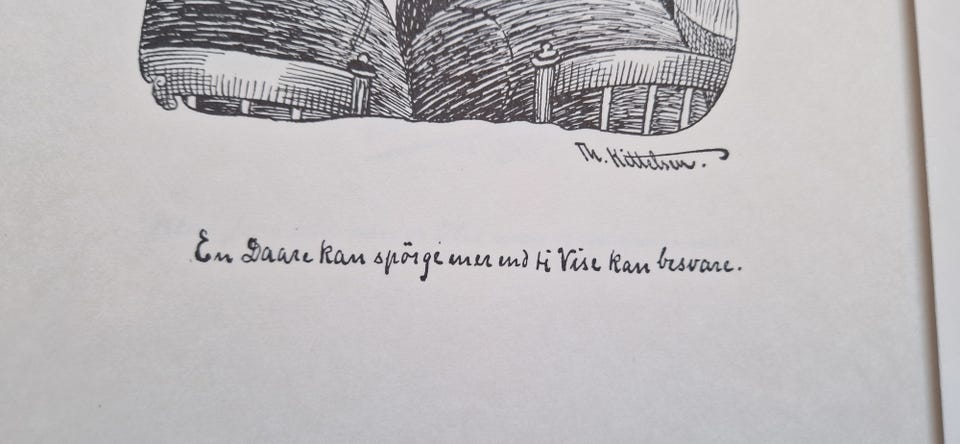 Th. Kittelsen.
En Daare kan spörge mer end ti Vise kan besvare.